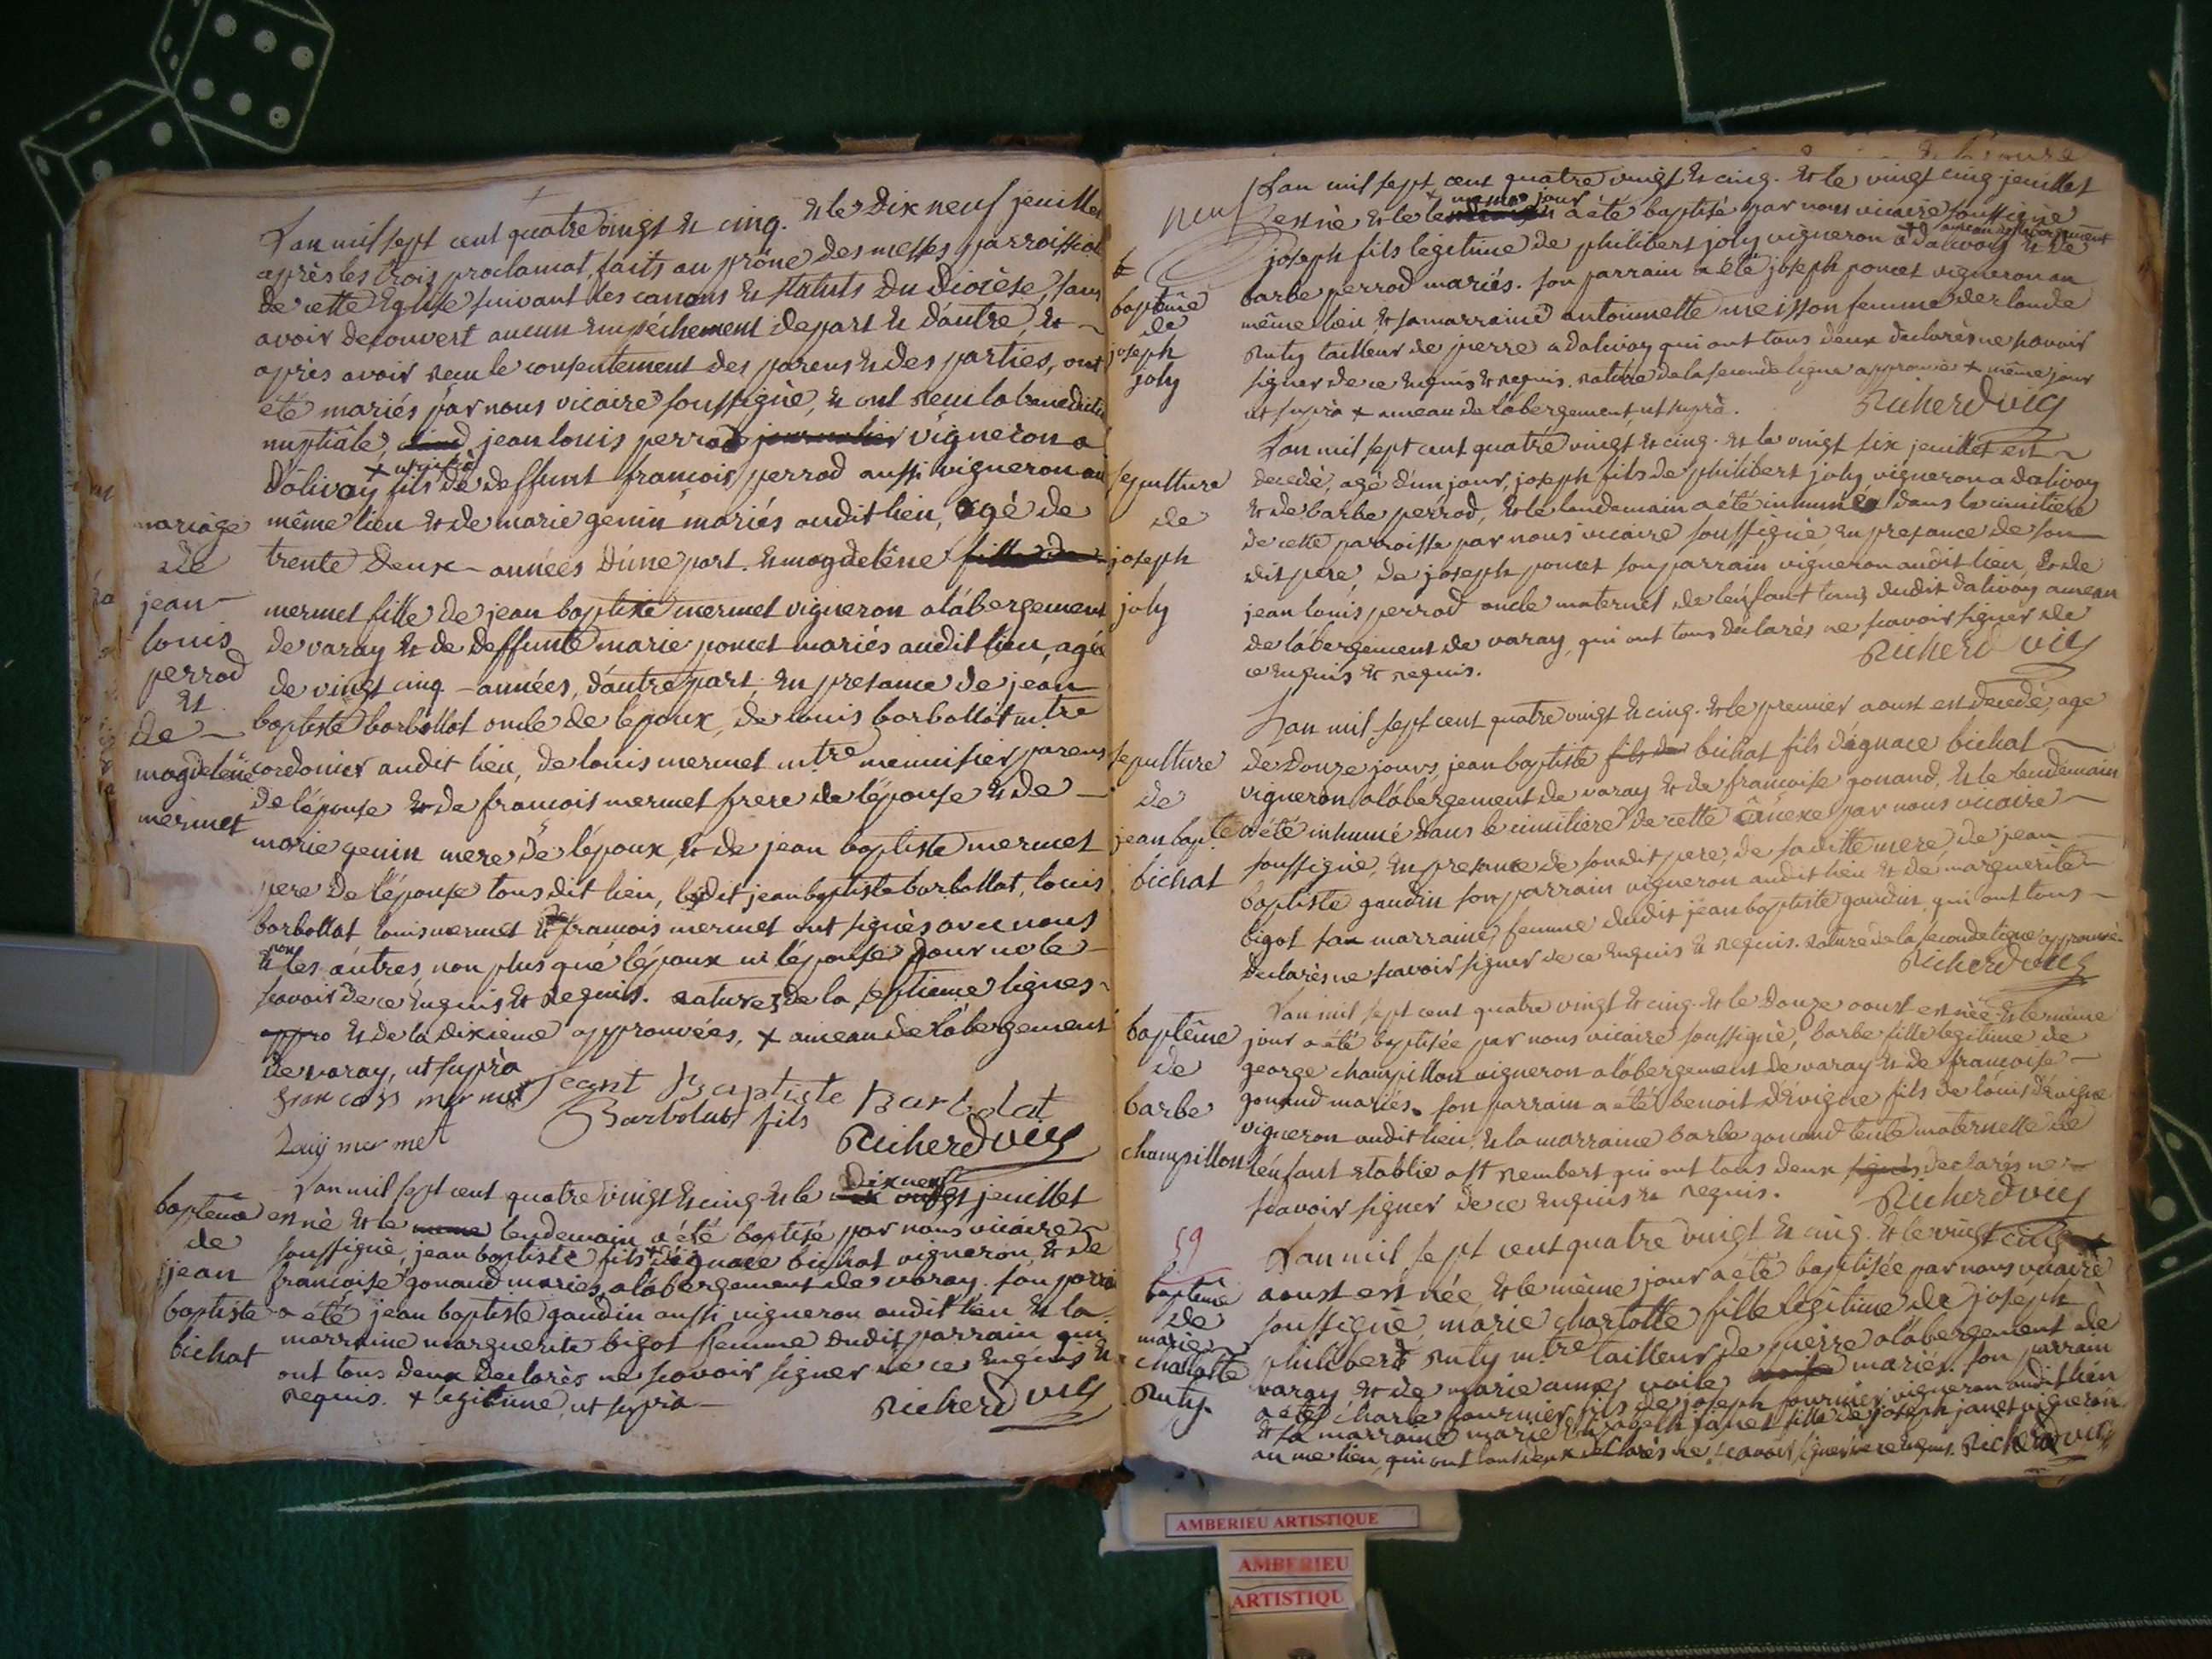 L'an mil sept cent quatre vingt et cinq. et le dix neuf jeuillet
après les trois proclamat, faits au prône des messes parroissial
de cette Eglise suivant les canons et statuts du diocèse, sans
avoir decouvert aucun empéchement de part et d'autre, et
après avoir reçu le consentement des parens et des parties, ont
été mariés par nous vicaire soussigné, et ont reçu la benedictio
nuptiâle, jean louis perrod journalier vigneron a
+ ut suprà
dâlivoy fils de deffunt francois perrod aussi vigneron au
même lieu et de marie genin mariés audit lieu, agé de
trente deux années d'une part. et magdeléne fille de
mermet fille de jean baptiste mermet vigneron a l'abergement
de varay et de deffunte marie poncet mariés audit lieu, agée
de vingt cinq années, d'autre part, en presance de jean
baptiste barbollat oncle de l'epoux, de louis barbollat mtre
cordonier audit lieu, de louis mermet mtre menuisier parens
de l'épouse et de francois mermet frere de l'épouse et de
marie genin mere de l'époux, et de jean baptiste mermet
pere de l'épouse tous dit lieu, ledit jean baptiste barbollat, louis
barbollat louis mermet et francois mermet ont signés avec nous
non
et les autres, non plus que l'époux ni l'épouse pour ne le
scavoir de ce enquis et requis. ratures de la septieme lignes
appro et de la dixieme approuvées. + ameau de l'abergement
de varay, ut suprà
francois mermet Jeant Baptiste Barbolat
Barbolat fils
Louij mermet
Richerd vic
mariage
de
jean
louis
perrod
et
de
magdeléne
mermet
L'an mil sept cent quatre vingt et cinq. et le dix neuf jeuillet
est né et le meme lendemain a été baptisé par nous vicaire
soussigné, jean baptiste fils + d'ignace bichat vigneron et de
francoise gonand mariés a l'abergement de varay. son parrain
a été jean baptiste gaudin aussi vigneron audit lieu et la
marraine marguerite bigot femme dudit parrain qui
ont tous deux declarés ne scavoir signer de ce enquis et
requis. + legitime, ut suprà
Richerd vic
baptême
de
jean
baptiste
bichat
neuf
L'an mil sept cent quatre vingt et cinq. et le vingt cinq jeuillet
+ meme jour
est né et le lendemain a été baptisé par nous vicaire soussigné
+ ameau de l'abergement
joseph fils legitime de philibert joly vigneron a dalivoy et de
barbe perrod mariés. son parrain a été joseph poncet vigneron au
même lieu et sa marraine antoinette meisson femme de claude
Ruty tailleur de pierre a dalivoy qui ont tous deux declarés ne scavoir
signer de ce enquis et requis. rature de la seconde ligne approuvée + même jour
ut suprà + ameau de l'abergement ut suprà.
Richerd vic
baptême
de
joseph
joly
L'an mil sept cent quatre vingt et cinq. et le vingt six jeuillet est
decedé, agé d'un jour, joseph fils de philibert joly vigneron a dalivoy
et de barbe perrod, et le lendemain a été inhumé dans le cimetiere
de cette parroisse par nous vicaire soussigné en presance de son
dit pere, de joseph poncet son parrain vigneron audit lieu, et de
jean louis perrod oncle maternel de l'enfant tous dudit dalivoy ameau
de l'abergement de varay, qui ont tous declarés ne scavoir signer de
ce enquis et requis.
Richerd vic
sepulture
de
joseph
joly
L'an mil sept cent quatre vingt et cinq. et le premier aoust est decedé, agé
de douze jours, jean baptiste fils de bichat fils d'ignace bichat
vigneron a l'abergement de varay et de francoise gonand, et le lendemain
a été inhumé dans le cimetiere de cette annexe par nous vicaire
soussigné, en presance de sondit pere, de saditte mere de jean
baptiste gaudin son parrain vigneron audit lieu et de marguerite
bigot sa marraine, femme dudit jean baptiste gaudin, qui ont tous
declarés ne scavoir signer de ce enquis et requis. rature de la seconde ligne approuvée.
Richerd vic
sepulture
de
jean bapte
bichat
L'an mil sept cent quatre vingt et cinq. et le douze aoust est née et le même
jour a été baptisée par nous vicaire soussigné, barbe fille legitime de
george champillon vigneron a l'abergement de varay et de francoise
gonand mariés. son parrain a été benoit dévigne fils de louis dévigne
vigneron audit lieu, et la marraine barbe gonand tente maternelle de
l'enfant etablie a st rembert qui ont tous deux signés declarés ne
scavoir signer de ce enquis et requis.
Richerd vic
baptême
de
barbe
champillon
59
L'an mil sept cent quatre vingt et cinq. et le vingt cinq
aoust est née et le même jour a été baptisée par nous vicaire
soussigné, marie charlotte fille legitime de joseph
philiberd Ruty mtre tailleur de pierre a l'abergement de
varay et de marie aimé voile mariés. son parrain
a été charle fournier fils de joseph fournier vigneron audit lieu
et sa marraine marie elizabeth janet fille de joseph janet vigneron
au me lieu, qui ont tous deux declarés ne scavoir signer de ce enquis. Richerd vic
baptême
de
marie
charlotte
Ruty.
AMBERIEU ARTISTIQUE
AMBERIEU
ARTISTIQU